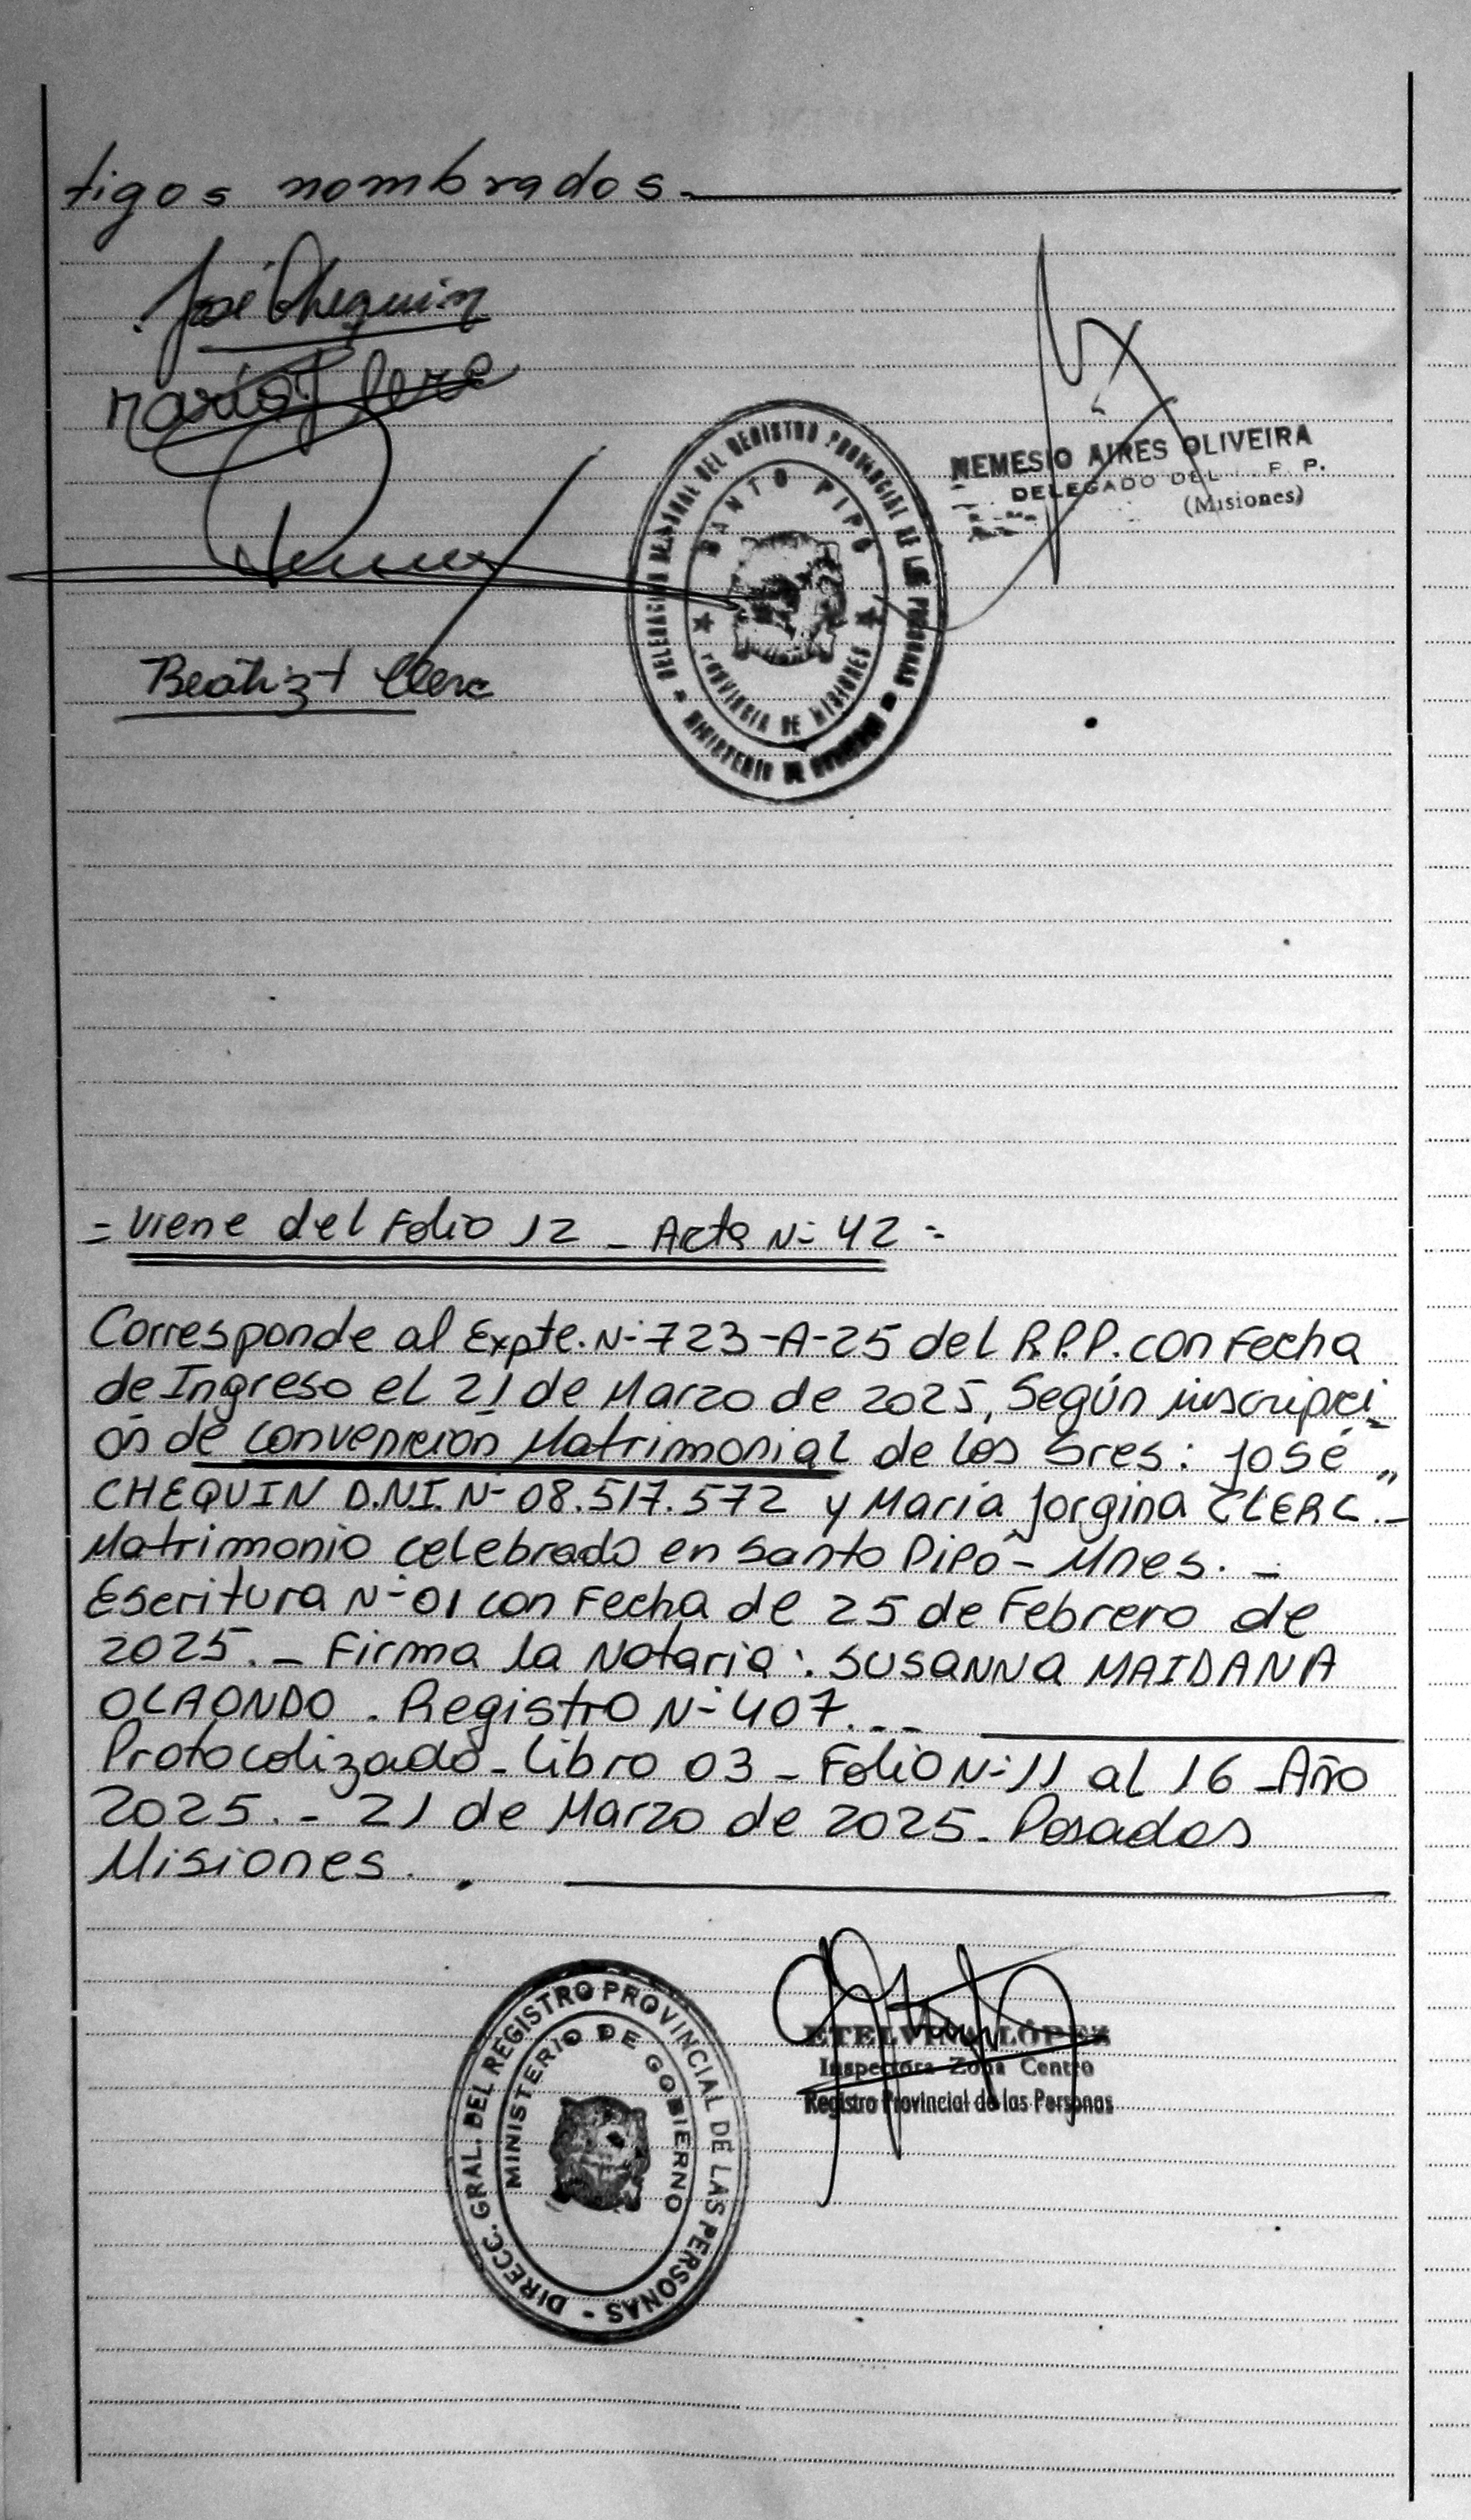 tigos nombrados.
José Chequin
Maria J Clerc
Beatriz t Clerc
DELEGACION SECCIONAL DEL REGISTRO PROVINCIAL DE LAS PERSONAS = MINISTERIO DE GOBIERNO =
SANTO PIPO
PROVINCIA DE MISIONES
NEMESIO AIRES OLIVEIRA
DELEGADO DEL F. P.
(Misiones)
= Viene del Folio 12 - Acta N- 42 =
Corresponde al Expte. N-723-A-25 del R.P.P. con Fecha
de Ingreso el 21 de Marzo de 2025, Según inscripci_
ón de Convencion Matrimonial de los Sres: José "
CHEQUIN D.N.I. N- 08.517.572 y Maria Jorgina CLERC.-
Matrimonio celebrado en Santo Pipó - Mnes. -
Escritura N-01 con Fecha de 25 de Febrero de
2025.- Firma la Notaria: SUSANNA MAIDANA
OLAONDO. Registro N-407.--
Protocolizado - Libro 03 - Folio N-11 al 16 - Año
2025.- 21 de Marzo de 2025. Posadas
Misiones.
DIRECC. GRAL. DEL REGISTRO PROVINCIAL DE LAS PERSONAS -
MINISTERIO DE GOBIERNO
ETELVINA LÓPEZ
Inspectora Zona Centro
Registro Provincial de las Personas